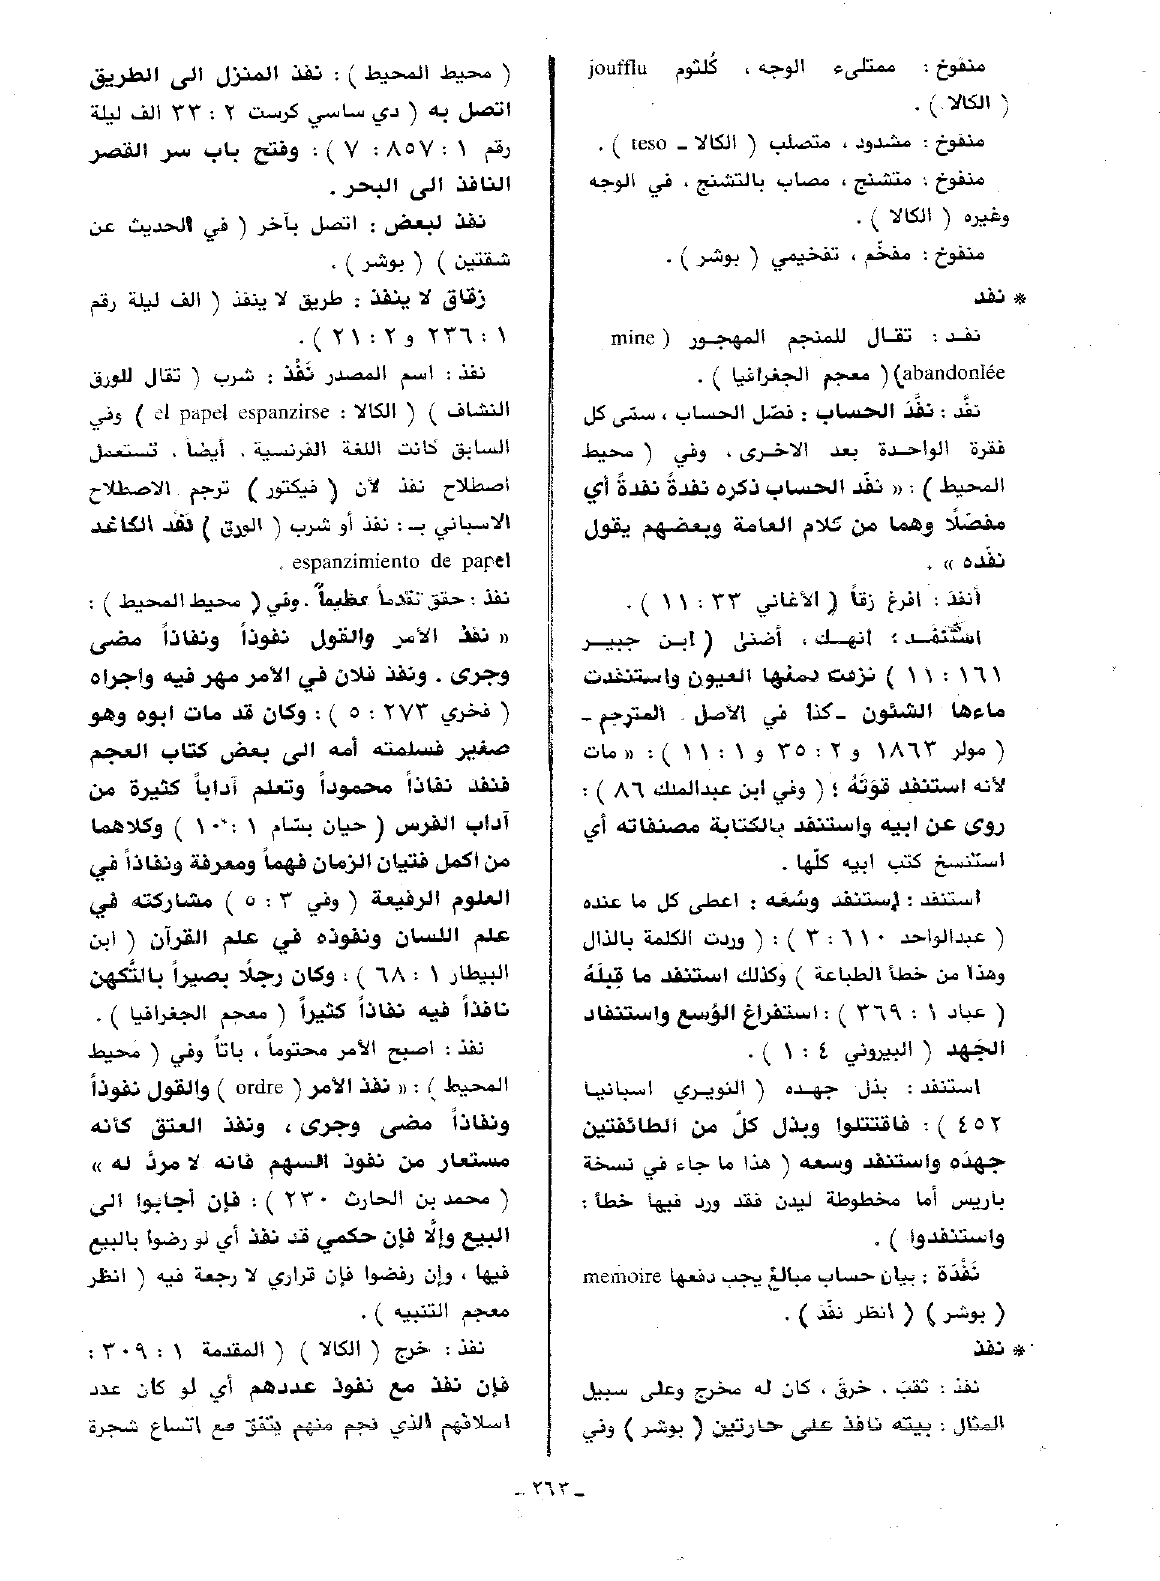 منفوخ : ممتلىء الوجه ، كُلثوم joufflu
( الكالا ) .
منفوخ : مشدود ، متصلب ( الكالا ـ teso ) .
منفوخ : متشنج ، مصاب بالتشنج ، في الوجه
وغيره ( الكالا ) .
منفوخ : مفخّم ، تفخيمي ( بوشر ) .
* نفد
نفـد : تقـال للمنجم المهجـور ( mine
abandonlée) ( معجم الجغرافيا ) .
نفَّد : نفَّدَ الحساب : فصّل الحساب ، ستى كل
فقرة الواحـدة بعد الاخـرى ، وفي ( محيط
المحيط ) : « نفّد الحساب ذكره نفدةً نفدةً أي
مفصّلًا وهما من كلام العامة وبعضهم يقول
نفّده » .
أنفدَ : افرغ زقاً ( الأغاني ٣٣ : ١١ ) .
استَنفـد : انهـك ، أضنى ( ابـن جبيـر
١٦١ : ١١ ) نزفت دمعها العيون واستنفدت
ماءها الشئون ـ كذا في الأصل المترجم ـ
( مولر ١٨٦٣ و ٢ : ٣٥ و ١ : ١١ ) : « مات
لأنه استنفد قوّتَهُ ؛ ( وفي ابن عبدالملك ٨٦ ) :
روى عن ابيه واستنفد بالكتابة مصنفاته أي
استنسخ كتب ابيه كلّها .
استنفد : إستنفد وسْعَه : اعطى كل ما عنده
( عبدالواحد ٦١٠ : ٣ ) : ( وردت الكلمة بالذال
وهذا من خطأ الطباعة ) وكذلك استنفد ما قِبلَهُ
( عباد ١ : ٣٦٩ ) : استفراغ الوُسع واستنفاد
الجَهد ( البيروني ٤ : ١ ) .
استنفد : بذل جهـده ( النويـري اسبانيـا
٤٥٢ ) : فاقتتلوا وبذل كلّ من الطائفتين
جهدَه واستنفد وسعه ( هذا ما جاء في نسخة
باريس أما مخطوطة ليدن فقد ورد فيها خطأ :
واستنفدوا ) .
نَفْدَة : بيان حساب مبالغ يجب دفعها memoire
( بوشر ) ( انظر نفّد ) .
* نفذ
نفذ : ثقبَ ، خرقَ ، كان له مخرج وعلى سبيل
المثال : بيته نافذ على حارتين ( بوشر ) وفي
( محيط المحيط ) : نفذ المنزل الى الطريق
اتصل به ( دي ساسي كرست ٢ : ٣٣ الف ليلة
رقم ١ : ٨٥٧ : ٧ ) : وفتح باب سر القصر
النافذ الى البحر .
نفذ لبعض : اتصل بآخر ( في الحديث عن
شقتين ) ( بوشر ) .
زقاق لا ينفذ : طريق لا ينفذ ( الف ليلة رقم
١ : ٢٣٦ و ٢ : ٢١ ) .
نفذ : اسم المصدر نَفْذ : شرب ( تقال للورق
النشاف ) ( الكالا : el papel espanzirse ) وفي
السابق كانت اللغة الفرنسية ، أيضاً ، تستعمل
اصطلاح نفذ لأن ( فيكتور ) ترجم الاصطلاح
الاسباني بـ : نفذ أو شرب ( الورق ) نَفْذ الكاغد
espanzimiento de papel .
نفذ : حقق تقدماً عظيماً . وفي ( محيط المحيط ) :
« نفذ الأمر والقول نفوذاً ونفاذاً مضى
وجرى . ونفذ فلان في الأمر مهر فيه واجراه
( فخري ٢٧٣ : ٥ ) : وكان قد مات ابوه وهو
صغير فسلمته أمه الى بعض كتاب العجم
فنفذ نفاذاً محموداً وتعلم آداباً كثيرة من
آداب الفرس ( حيان بسّام ١ : ١٠ ) وكلاهما
من اكمل فتيان الزمان فهماً ومعرفة ونفاذاً في
العلوم الرفيعة ( وفي ٣ : ٥ ) مشاركته في
علم اللسان ونفوذه في علم القرآن ( ابن
البيطار ١ : ٦٨ ) : وكان رجلًا بصيراً بالتَّكهن
نافذاً فيه نفاذاً كثيراً ( معجم الجغرافيا ) .
نفذ : اصبح الأمر محتوماً ، باتاً وفي ( محيط
المحيط ) : « نفذ الأمر ( ordre ) والقول نفوذاً
ونفاذاً مضى وجرى ، ونفذ العتق كأنه
مستعار من نفوذ السهم فانه لا مردَّ له »
( محمد بن الحارث ٢٣٠ ) : فإن أجابوا الى
البيع وإلَّا فإن حكمي قد نفذ أي لو رضوا بالبيع
فيها ، وإن رفضوا فإن قراري لا رجعة فيه ( انظر
معجم التنبيه ) .
نفذ : خرج ( الكالا ) ( المقدمة ١ : ٣٠٩ :
فإن نفذ مع نفوذ عددهم أي لو كان عدد
اسلافهم الذي نجم منهم يتفق مع اتساع شجرة
ـ ٢٦٣ ـ